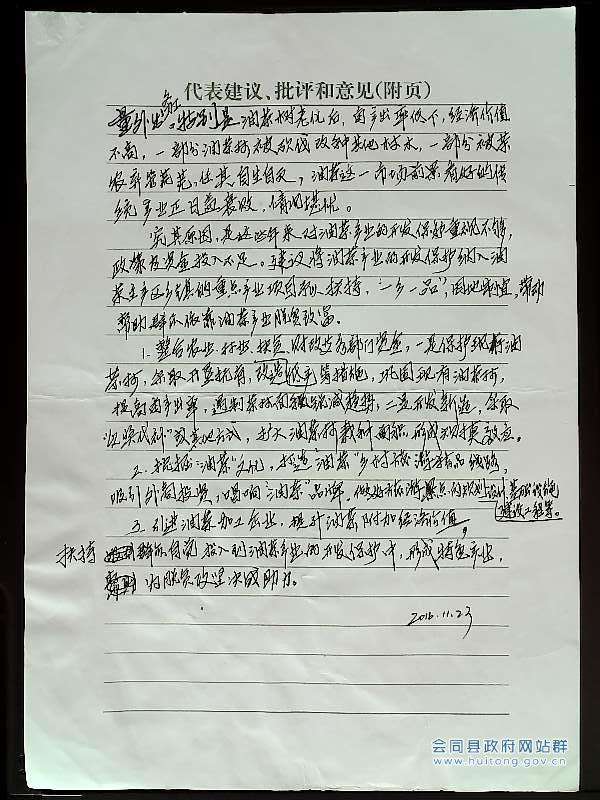 代表建议、批评和意见(附页)
量外出务工。特别是油茶树老化后,亩产出率低下,经济价值
不高,一部分油茶林被砍伐改种其他林木,一部分被茶
农弃容荒芜,任其自生自灭,油茶这一
统产业正日益衰败,情况堪忧。
究其原因,是这些年来对油茶产业的开发保护重视不够,
政策及资金投入不足。建议将油茶产业的开发保护纳入油
茶主产区乡镇的重点产业项目予以扶持,“一乡一品”,因地制宜,带动
帮助群众依靠油茶产业脱贫致富。
1.整合农业、林业、扶贫、财政等部门资金,一是保护现有油
茶林,采取开垦抚育,改造低产等措施,巩固现有油茶林,
提高亩产出率,遏制茶林面积锐减趋势,二是开发新造,采取
方式,扩大油茶林栽种面积,形成规模效应。
2.挖掘“油茶”文化,打造油茶“乡村旅游”精品线路,
吸引外商投资,唱响“油茶”品牌,做好旅游景点的规划设计、基础设施
建设工程等。
3.引进油茶加工企业,提升油茶附加经济价值,
扶持群众自觉投入到油茶产业的开发保护中,形成特色产业,
为脱贫攻坚决战助力。
2016.11.23
会同县政府网站群
www.huitong.gov.cn